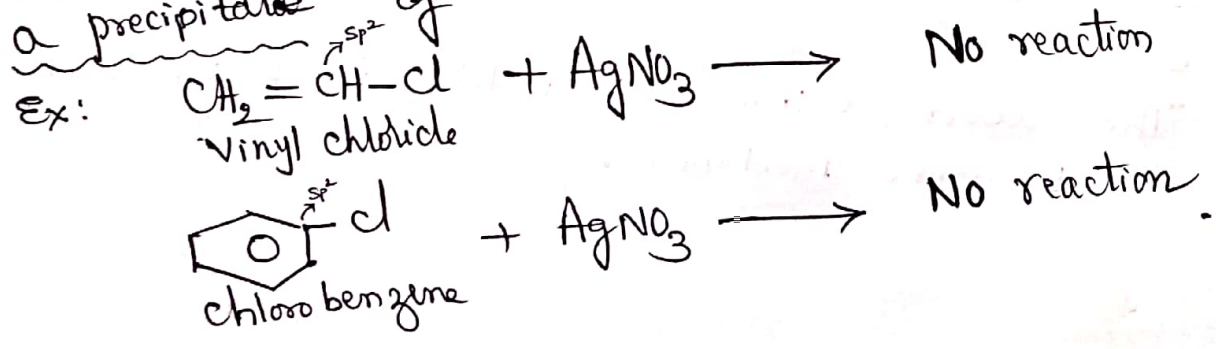 a precipitate of
Ex: CH₂ = CH–Cl + AgNO₃ ⟶ No reaction
sp²
Vinyl chloride
sp²
Cl + AgNO₃ ⟶ No reaction.
chlorobenzene